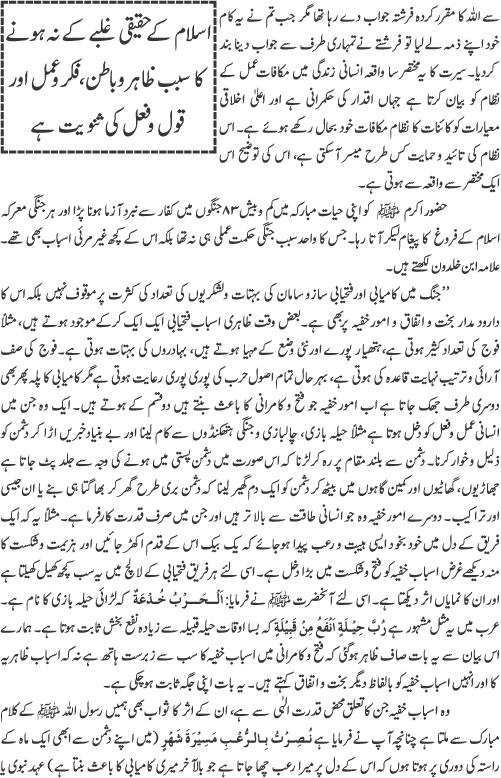 اسلام کے حقیقی غلبے کے نہ ہونے
کا سبب ظاہر و باطن، فکر و عمل اور
قول و فعل کی ثنویت ہے
سے اللہ کا مقرر کردہ فرشتہ جواب دے رہا تھا مگر جب تم نے یہ کام
خود اپنے ذمہ لے لیا تو فرشتے نے تمہاری طرف سے جواب دینا بند
کردیا۔ سیرت کا یہ مختصر سا واقعہ انسانی زندگی میں مکافات عمل کے
نظام کو بیان کرتا ہے جہاں اقدار کی حکمرانی ہے اور اعلیٰ اخلاقی
معیارات کو کائنات کا نظام مکافات خود بحال رکھے ہوئے ہے۔ اس
نظام کی تائید و حمایت کس طرح میسر آسکتی ہے، اس کی توضیح اس
ایک مختصر سے واقعہ سے ہوتی ہے۔
حضور اکرم ﷺ کو اپنی حیات مبارکہ میں کم و بیش ۸۳ جنگوں میں کفار سے نبرد آزما ہونا پڑا اور ہر جنگی معرکہ
اسلام کے فروغ کا پیغام لیکر آتا رہا۔ جس کا واحد سبب جنگی حکمت عملی ہی نہ تھا بلکہ اس کے کچھ غیر مرئی اسباب بھی تھے۔
علامہ ابن خلدون لکھتے ہیں۔
’’جنگ میں کامیابی اور فتحیابی ساز و سامان کی بہتات و لشکریوں کی تعداد کی کثرت پر موقوف نہیں بلکہ اس کا
دارومدار بخت و اتفاق و امور خفیہ پر بھی ہے۔ بعض وقت ظاہری اسباب فتحیابی ایک ایک کرکے موجود ہوتے ہیں، مثلاً
فوج کی تعداد کثیر ہوتی ہے، ہتھیار پورے اور نئی وضع کے مہیا ہوتے ہیں، بہادروں کی بہتات ہوتی ہے۔ فوج کی صف
آرائی و ترتیب نہایت قاعدہ کی ہوتی ہے، بہرحال تمام اصول حرب کی پوری پوری رعایت ہوتی ہے مگر کامیابی کا پلہ پھر بھی
دوسری طرف جھک جاتا ہے اب امور خفیہ جو فتح و کامرانی کا باعث بنتے ہیں دو قسم کے ہوتے ہیں۔ ایک وہ جن میں
انسانی عمل و فعل کو دخل ہوتا ہے مثلاً حیلہ بازی، چالبازی و جنگی ہتھکنڈوں سے کام لینا اور بے بنیاد خبریں اڑا کر دشمن کو
ذلیل و خوار کرنا۔ دشمن سے بلند مقام پر رہ کر لڑنا کہ اس صورت میں دشمن پستی میں ہونے کی وجہ سے جلد پٹ جاتا ہے
جھاڑیوں، گھاٹیوں اور کمین گاہوں میں بیٹھ کر دشمن کو ایک دم گھیر لینا کہ دشمن بری طرح گھر کر بھاگتا ہی بنے یا ان جیسی
اور تراکیب۔ دوسرے امور خفیہ وہ جو انسانی طاقت سے بالا تر ہیں اور جن میں صرف قدرت کارفرما ہے۔ مثلاً یہ کہ ایک
فریق کے دل میں خود بخود ایسی ہیبت و رعب پیدا ہوجائے کہ یک بیک اس کے قدم اکھڑ جائیں اور ہزیمت و شکست کا
منہ دیکھے غرض اسباب خفیہ کو فتح و شکست میں بڑا دخل ہے۔ اسی لئے ہر فریق فتحیابی کے لالچ میں یہ سب کچھ کھیل کھیلتا ہے
اور ان کا نمایاں اثر دیکھتا ہے۔ اسی لئے آنحضرت ﷺ نے فرمایا: اَلْحَرْبُ خُدْعَةٌ کہ لڑائی حیلہ بازی کا نام ہے۔
عرب میں یہ مثل مشہور ہے رُبَّ حِيْلَةٍ اَنْفَعُ مِنْ قَبِيْلَةٍ کہ بسا اوقات حیلہ قبیلہ سے زیادہ نفع بخش ثابت ہوتا ہے۔ ہمارے
اس بیان سے یہ بات صاف ظاہر ہوگئی کہ فتح و کامرانی میں اسباب خفیہ کا سب سے زبردست ہاتھ ہے نہ کہ اسباب ظاہریہ
کا اور انہیں اسباب خفیہ کو بالفاظ دیگر بخت و اتفاق کہتے ہیں۔ یہ بات اپنی جگہ ثابت ہوچکی ہے۔
وہ اسباب خفیہ جن کا تعلق محض قدرت الٰہی سے ہے، ان کے اثر کا ثواب بھی ہمیں رسول اللہ ﷺ کے کلام
مبارک سے ملتا ہے چنانچہ آپ نے فرمایا ہے نُصِرْتُ بِالرُّعْبِ مَسِيْرَةَ شَهْرٍ (میں اپنے دشمن سے ابھی ایک ماہ کے
راستہ کی دوری پر ہوتا ہوں کہ اس کے دل پر میرا رعب چھا جاتا ہے جو بالآخر میری کامیابی کا باعث بنتا ہے) عہد نبوی یا